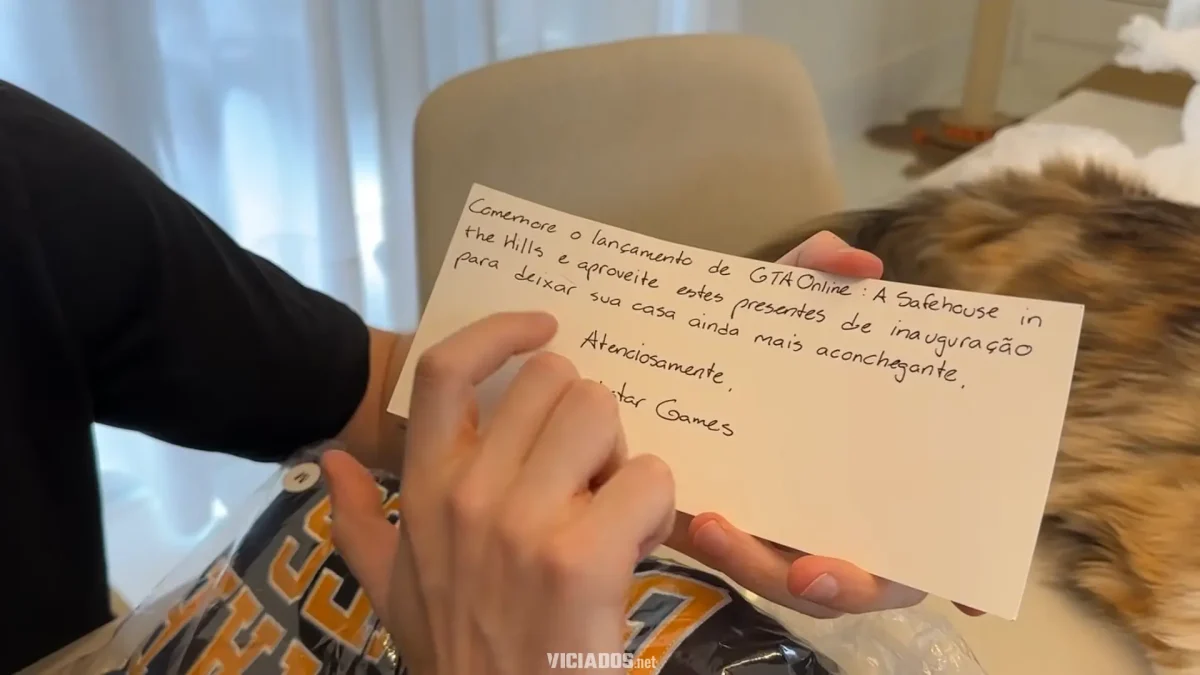 Comemore o lançamento de GTA Online: A Safehouse in
the Hills e aproveite estes presentes de inauguração
para deixar sua casa ainda mais aconchegante.
Atenciosamente,
Games
M
VICIADOS.net